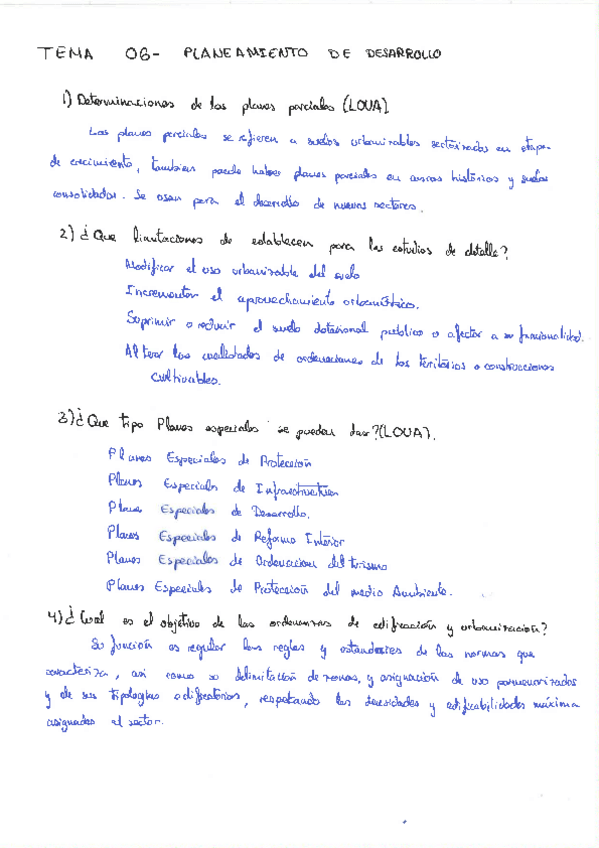 TEMA 06- PLANEAMIENTO DE DESARROLLO
1) Determinaciones de los planes parciales (LOUA)
Los planes parciales se refieren a suelos urbanizables sectorizados en etapa
de crecimiento, tambien puede haber planes parciales en áreas históricos y suelos
consolidados. Se usan para el desarrollo de nuevos sectores.
2) ¿Que limitaciones de establecen para los estudios de detalle?
Modificar el uso urbanizable del suelo
Incrementar el aprovechamiento urbanístico.
Suprimir o reducir el suelo dotacional publico o afectar a su funcionalidad.
Alterar las cualidades de ordenaciones de los territorios o construcciones
cultivables.
3) ¿Que tipo Planes especiales se pueden dar? (LOUA).
Planes Especiales de Protección
Planes Especiales de Infraestructuras
Planes Especiales de Desarrollo.
Planes Especiales de Reforma Interior
Planes Especiales de Ordenacion del turismo
Planes Especiales de Protección del medio Ambiente.
4) ¿Cual es el objetivo de las ordenanzas de edificación y urbanización?
Su función es regular las reglas y estandares de las normas que
caracteriza, asi como su delimitación de zonas, y asignación de uso pormenorizados
y de sus tipologias edificatorias, respetando las densidades y edificabilidades máxima
asignadas al sector.